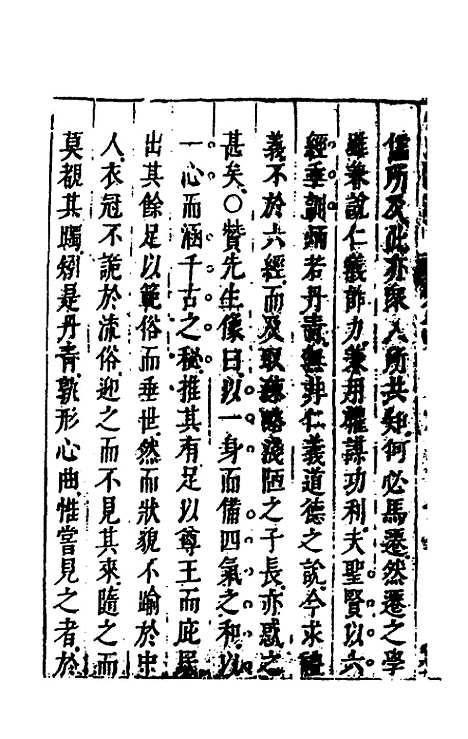 儒所及此亦眾人所共知何必馬遷然遷之學
雖兼說仁義詐力兼用權謀功利夫聖賢以六
經垂訓炳若丹青無非仁義道德之說今求禮
義不於六經而及取疎略淺陋之子長亦惑之
甚矣○贊先生像曰以一身而備四氣之和以
一心而涵千古之秘推其有足以尊王而庇民
出其餘足以範俗而垂世然而狀貌不踰於中
人衣冠不詭於流俗迎之而不見其來隨之而
莫覩其躅矧是丹青孰形心曲惟嘗見之者於